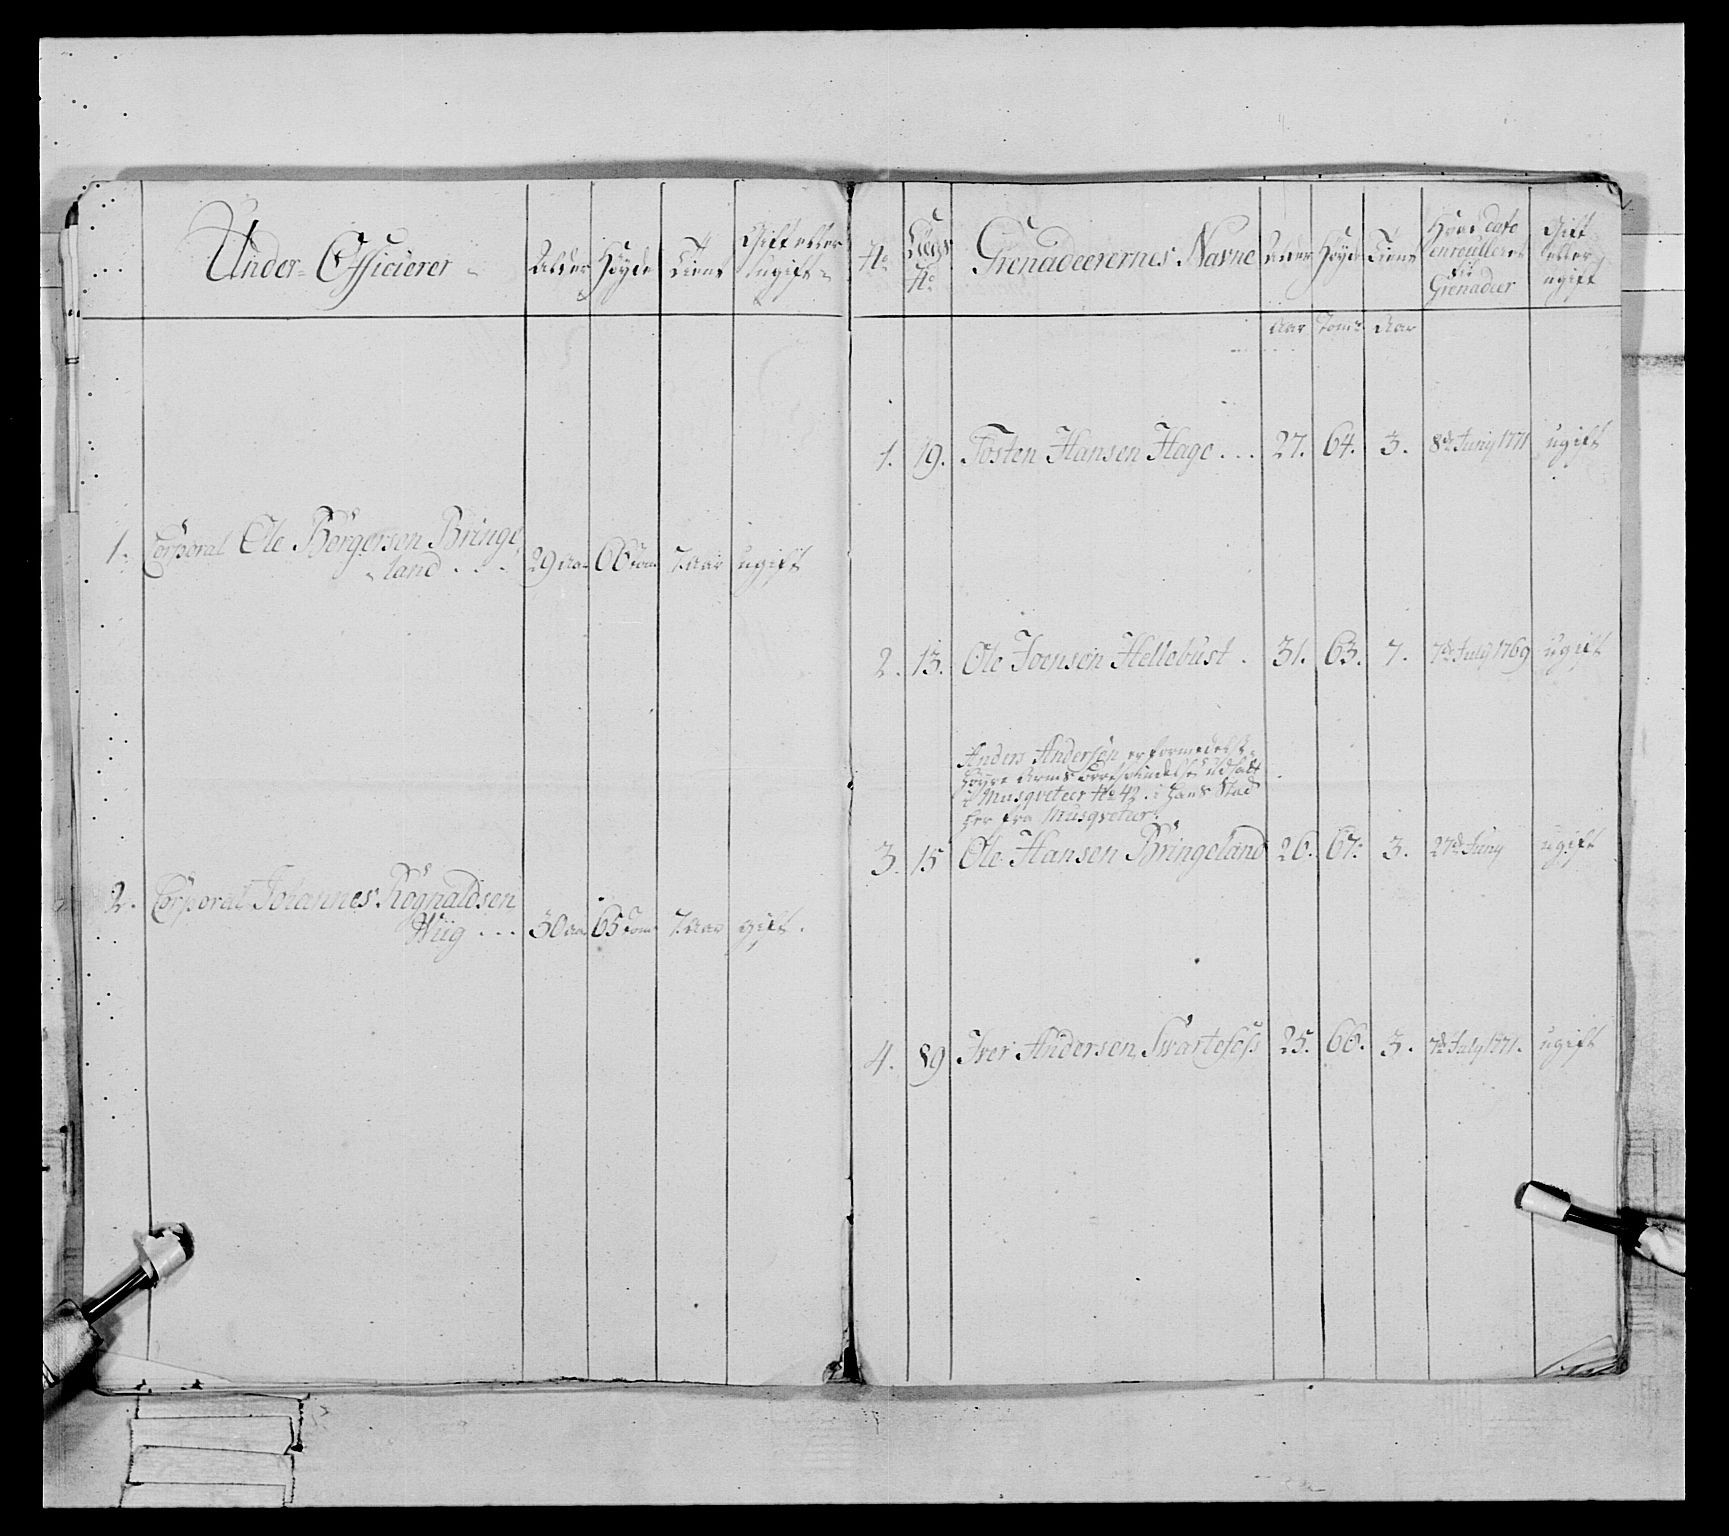 Under-Officierer
Alder
Høyde
Tient
Gift eller
ugift
1. Corporal Ole Børgersen Bringe-
land . . . 29 Aar 66 tom 7. Aar ugift
2. Corporal Johannes Rognaldsen
Wiig . . . 30 aar 65 tom 7. Aar gift.
No.
Lægs
No.
Grenadeerernes Navne
Alder
Høyde
Tient
Hvad dato
enroulleret
til
Grenadeer
Gift
eller
ugift
Aar tomr Aar
1. 19. Tosten Hansen Hage . . . 27. 64. 3. 8de Juny 1771 ugift
2. 13. Ole Joensen Hellebust . 31. 63. 7. 7de July 1769 ugift
Anders Andersøn er formedelst
høyre Arms udsadt
i Musqveteer No 42. i hans Stæd
her fra Musqveteer.
3. 15 Ole Hansen Bringeland 26. 67. 3. 27de Juny ugift
4. 89 Iver Andersen Svartefoss 25. 66. 3. 7de July 1771. ugift